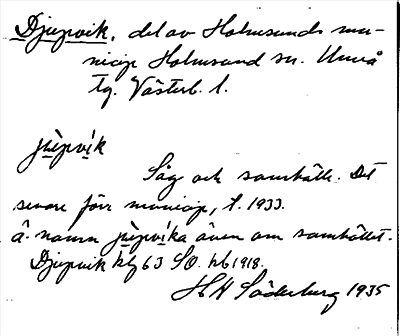 Djupvik, del av Holmsunds mu-
nicip Holmsund sn. Umeå
tg. Västerb. l.
jùpvik
Såg och samhälle. Det
senare förr municip, t. 1933.
Ä. namn jùpvika även om samhället.
Djupvik hlg 63 SO. hb 1918.
H H Söderberg 1935